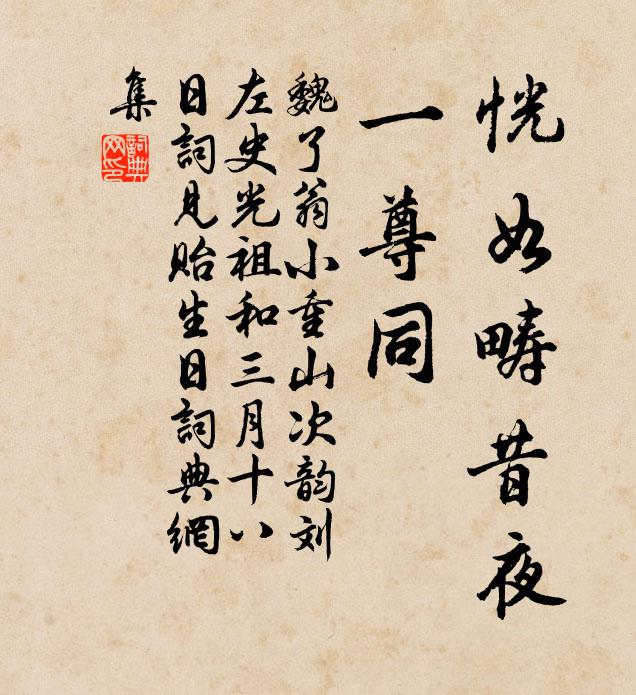 恍如畴昔夜
一尊同
魏了翁小重山次韵刘
左史光祖和三月十八
日詞見貽生日詞典網
集
詞典
网印